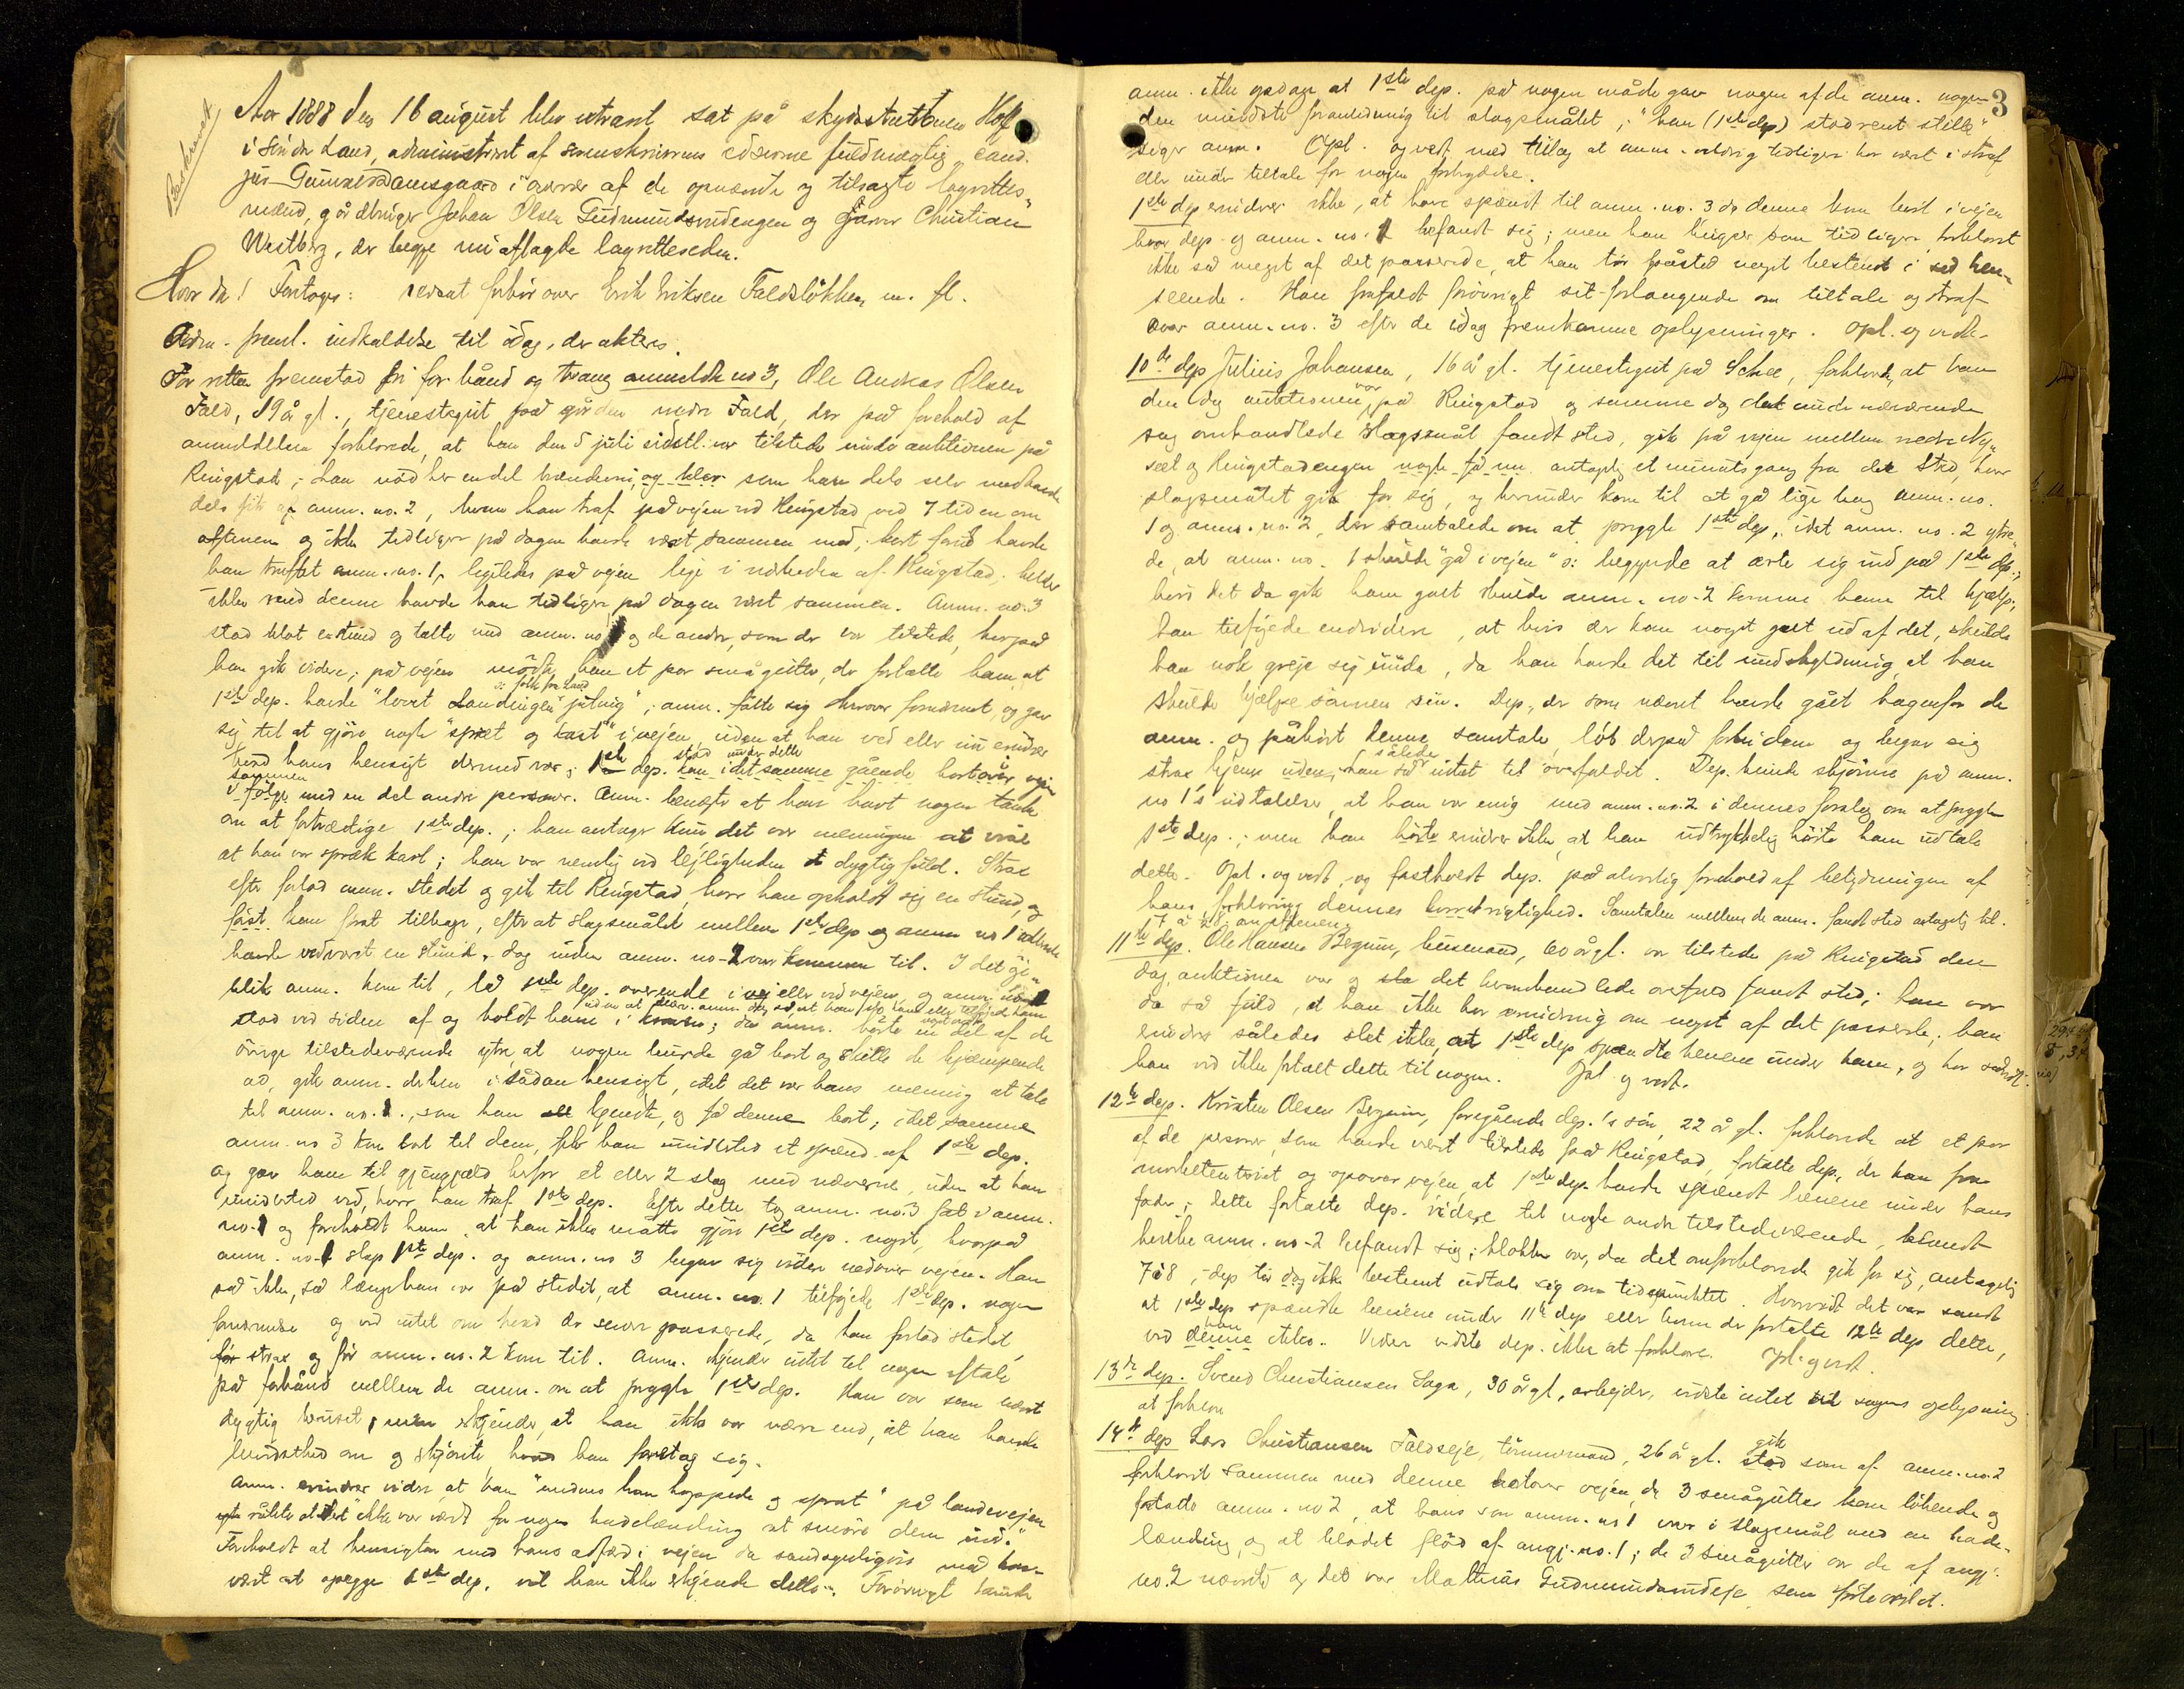 Beskrevet
Aar 1888 den 16 august blev extraret sat på skydsstationen Hof
i Søndre Land, administreret af sorenskriverens edsvorne fuldmægtig, cand.
jur. Gunnerdamsgaard i nærvær af de opnævnte og tilsagte lagrettes-
mænd, gårdbruger Johan Olsen Gudmundsrudengen og garver Christian
Westberg, der begge nu aflagde lagrettesed.
Hvor da! Foretoges: retsligt forhør over Erik Eriksen Faldsløkken m. fl.
Adm. freml. indkaldelse til idag, der akteres.
For retten fremstod fri for bånd og tvang anmeldte no 3, Ole Andreas Olsen
Fald, 19 år gl., tjenestegut på gården nedre Fald, der på forehold af
anmeldelsen forklarede, at han den 5 juli sidstl. var tilstede under auktionen på
Ringstad; han nød her endel brændevin og klar som han dels selv medhavde
dels fik af anm. no. 2, hvem han traf på vejen ved Ringstad ved 7 tiden om
aftenen og ikke tidligere på dagen havde vært sammen med; kort forud havde
han truffet anm. no. 1, ligeledes på vejen lige i nærheden af Ringstad. heller
ikke med denne havde han tidligere på dagen vært sammen. Anm. no. 3
stod blot en stund og talte med anm. no 1 og de andre, som der var tilstede, hvorpå
han gik videre; på vejen mødte han et par smågutter, der fortalte ham, at
ɔ: folk fra Land
1ste dep. havde "lovet Landinger juling"; anm. følte sig herover fornærmet og gav
sig til at gjøre nogle "spræt og kast" i vejen, uden at han ved eller nu erindrer
hvad hans hensigt dermed var; 1ste dep. kom stod under dette i det samme gående bortover vejen
sammen
i følge med en del andre personer. Anm. benægter at have havt nogen tanke
om at fortrædige 1ste dep.; han antager kun det var meningen at vise
at han var spræk kar; han var nemlig ved lejligheden dygtig fuld. Strax
efter forlod anm. stedet og gik til Ringstad, hvor han opholdt sig en stund, og
først kom frat tilbage, efter at slagsmålet mellem 1ste dep. og anm. no 1 allerede
havde vedvaret en stund, dog inden anm. no 2 var kommen til. I det øje-
blik anm. kom til, lå 1ste dep. overende i vej eller ved vejen, og anm. no 1
stod ved siden af og holdt ham i kraven; da anm. hørte en del af de
øvrige tilstedeværende ytre, at nogen burde gå bort og skille de kjæmpende
ad, gik anm. derhen i sådan hensigt, idet det var hans mening at tale
til anm. no. 1., som han kjendte, og få denne bort; i det samme
anm. no 3 kom bort til dem, fik han imidlertid et spænd af 1ste dep.
og gav ham til gjengjæld herfor et eller 2 slag med næverne, uden at han
imidlertid ved, hvor han traf 1ste dep. Efter dette tog anm. no. 3 fat i anm.
no. 1 og foreholdt ham at han ikke måtte gjøre 1ste dep. noget, hvorpå
anm. no. 1 slap 1ste dep. og anm. no 3 begav sig videre nedover vejen. Han
så ikke, så længe han var på stedet, at anm. no. 1 tilføjede 1ste dep. nogen
fornærmelse og ved intet om hvad der senere passerede, da han forlod stedet
før strax og før anm. no. 2 kom til. Anm. kjender intet til nogen aftale
på forhånd mellem de anm. om at prygle 1ste dep. Han var som nævnt
dygtig beruset, men skjønner, at han ikke var værre end, at han havde
bevidsthed om og skjønte, hvad han foretog sig.
Anm. erindrer videre at han "imens han hoppede og sprat" på landevejen
råbte at "det ikke var værdt for nogen hadelænding at smøre dem ind."
Foreholdt at hensigten med hans adfærd i vejen da sandsynligvis må have
vært at opægge 1ste dep. vil han ikke erkjende dette. Forøvrigt kunde
3
anm. ikke opdage at 1ste dep. på nogen måde gav nogen af de anm. nogen-
den mindste foranledning til slagsmålet; "han (1ste dep) stod rent stille",
siger anm. Opl. og vedt. med tillæg at anm. aldrig tidligere har vært i straf
eller under tiltale for nogen forbrydelse.
1ste dep erindrer ikke, at have spændt til anm. no. 3 da denne kom bort i vejen
hvor dep. og anm. no. 1 befandt sig; men han husker som tidligere forklaret
ikke så meget af det passerede, at han tør påstå noget bestemt i så hen-
seende. Han frafaldt forøvrigt sit forlangende om tiltale og straf
over anm. no. 3 efter de idag fremkomne oplysninger. Opl. og vedt.
10de dep Julius Johansen, 16 år gl. tjenestegut på Schee, forklarede, at han
den dag auktionen var på Ringstad og samme dag det under nærværende
sag omhandlede slagsmål fandt sted, gik på vejen mellem nedre Ny-
sæt og Ringstadengen nogle få antagelig et minuts gang fra det sted, hvor
slagsmålet gik for sig, og herunder kom til at gå lige bag anm. no.
1 og anm. no. 2, der samtalede om at prygle 1ste dep., idet anm. no. 2 ytre-
de, at anm. no. 1 skulde "gå i vejen" ɔ: begynde at ærte sig ind på 1ste dep.;
hvis det da gik ham galt skulde anm. no. 2 komme ham til hjælp;
han tilføjede endvidere, at hvis der kom noget galt ud af det, skulde
han nok greje sig unda, da han havde det til undskyldning, at han
skulde hjælpe sønnen sin. Dep., der som nævnt havde gået bagenfor de
anm. og påhørt denne samtale, løb derpå forbi dem og begav sig
strax hjem uden, således han så intet til overfaldet. Dep. kunde skjønne på anm.
no 1's udtalelser, at han var enig med anm. no. 2 i dennes forslag om at prygle
1ste dep.; men han hørte erindrer ikke, at han udtrykkelig hørte ham udtale
dette. Opl. og vedt. og fastholdt dep. på alvorlig forehold af betydningen af
hans forklaring dennes korrekt rigtighed. Samtalen mellem de anm. fandt sted antagelig kl.
7 à 8 om aftenen.
11te dep. Ole Hansen Bergum, husmand, 60 år gl. var tilstede på Ringstad den
dag, auktionen var og det heromhandlede overfald fandt sted; han var
da så fuld, at han ikke har erindring om noget af det passerede; han
erindrer således slet ikke, at 1ste dep spændte benene under ham, og har såvidt
han ved ikke fortalt dette til nogen. Opl. og vedt.
12te dep. Kristen Olsen Bergum, foregående dep.'s søn, 22 år gl. forklarede at et par
af de personer, som havde vært tilstede på Ringstad, fortalte dep., der kom fra
markedet og opover vejen, at 1ste dep. havde spændt benene under hans
fader; dette fortalte dep. videre til nogle andre tilstedeværende, blandt
hvilke anm. no. 2 befandt sig; klokken var, da det omforklarede gik for sig, antagelig
7 à 8, dep tør dog ikke bestemt udtale sig om tidspunktet. Hvorvidt det var sandt
at 1ste dep spændte benene under 11te dep eller hvem der fortalte 12te dep dette,
ved han denne ikke. Videre vidste dep. ikke at forklare. Opl. og vedt.
13de dep. Svend Christiansen Saga, 30 år gl, arbejder, vidste intet til sagens oplysning
at forklare
14de dep Lars Christiansen Faldseje, tømmermand, 26 år gl. stod gik som af anm. no. 2
forklaret sammen med denne bortover vejen, da 3 smågutter kom løbende og
fortalte anm. no 2, at hans søn anm. no 1 var i slagsmål med en hade-
lænding, og at blodet flød af angj. no. 1; de 3 smågutter var de af angj.
no. 2 nævnte og det var Mathias Gudmundsrudeje som førte ordet.